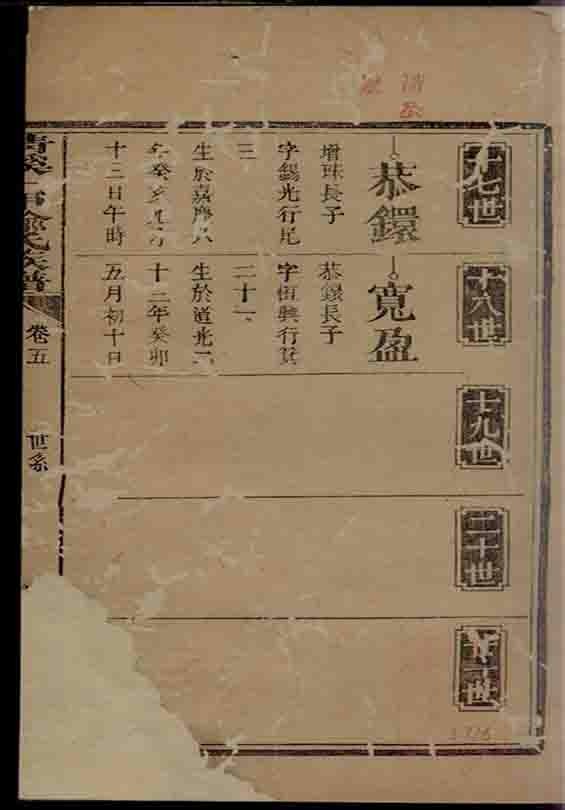 十七世
十八世
十九世
二十世
世
恭鐶
增琜長子
字錫光行尾
三
生於嘉慶八
年癸亥
十二日午時
寬盈
恭鐶長子
字恆興行箕
二十一
生於道光二
十三年癸卯
五月初十日
氏族譜
卷五
世系